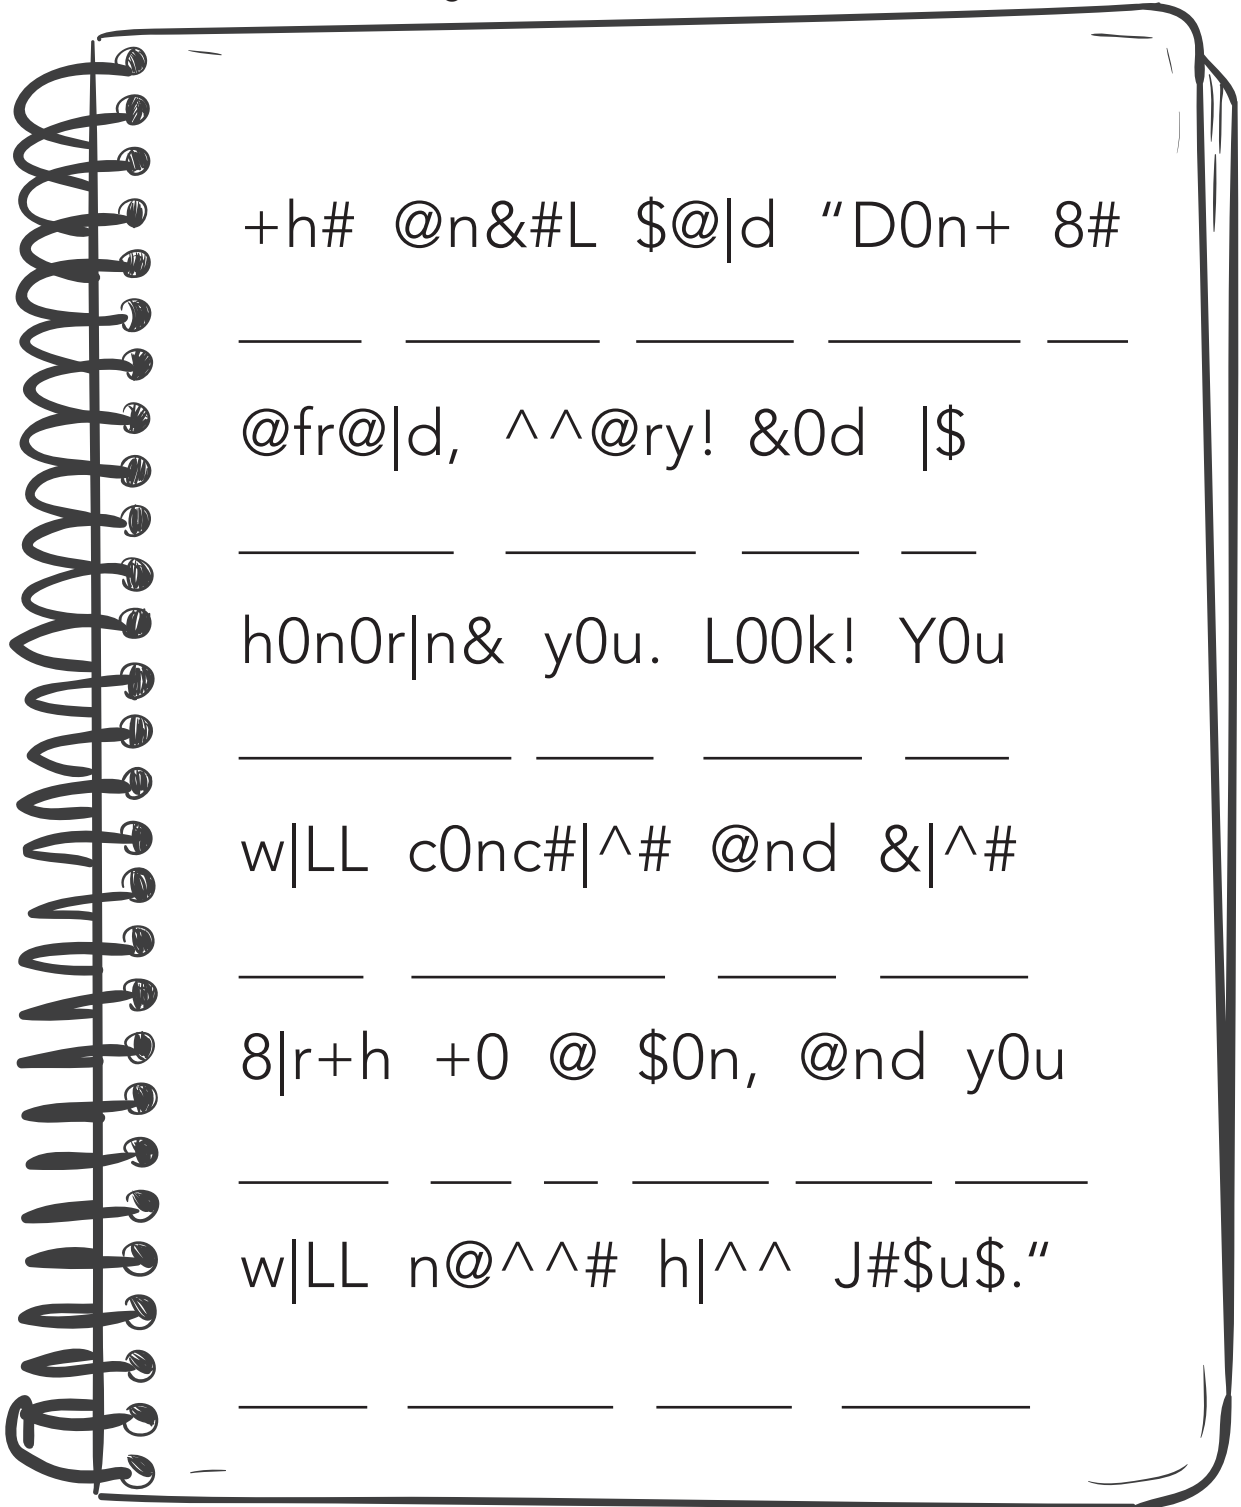 +h# @n&#L $@|d “D0n+ 8#
@fr@|d, ^^@ry! &0d |$
h0n0r|n& y0u. L00k! Y0u
w|LL c0nc#|^# @nd &|^#
8|r+h +0 @ $0n, @nd y0u
w|LL n@^^# h|^^ J#$u$.“